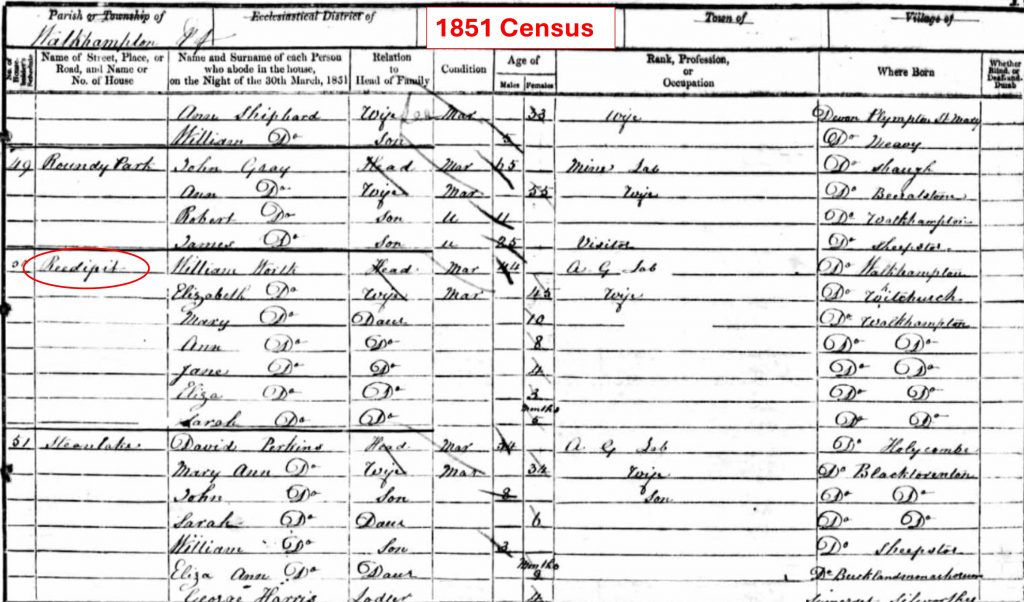 1851 Census
Parish or Township of Ecclesiastical District of Town of Village of
Walkhampton
Name of Street, Place, or Road, and Name or No. of House
Name and Surname of each Person who abode in the house, on the Night of the 30th March, 1851
Relation to Head of Family
Condition
Age of
Males Females
Rank, Profession, or Occupation
Where Born
Whether Blind, or Deaf-and-Dumb
Ann Shiphard Wife Mar 33 Wife Devon Plympton St Mary
William Do Son 5 Do Meavy
49 Roundy Park John Gray Head Mar 65 Mine Lab Do Shaugh
Ann Do Wife Mar 55 Wife Do Beeralston
Robert Do Son U 11 Do Walkhampton
James Do Son U 25 Visitor Do Sheepstor
Reedipit William Worth Head Mar 44 A G Lab Do Walkhampton
Elizabeth Do Wife Mar 45 Wife Do Witchurch
Mary Do Daur 10 Do Walkhampton
Ann Do Do 8 Do Do
Jane Do Do 4 Do Do
Eliza Do Do 3 Do Do
Sarah Do Do Months 5 Do Do
51 Steanlake David Perkins Head Mar 34 A G Lab Do Holycombe
Mary Ann Do Wife Mar 34 Wife Do Blacktorenton
John Do Son 8 Son Do Do
Sarah Do Daur 6 Do Do
William Do Son 3 Do Sheepstor
Eliza Ann Do Daur Months 9 Do Bucklandmonachorum
George Harris Lodler 4 Somerset Silworthy